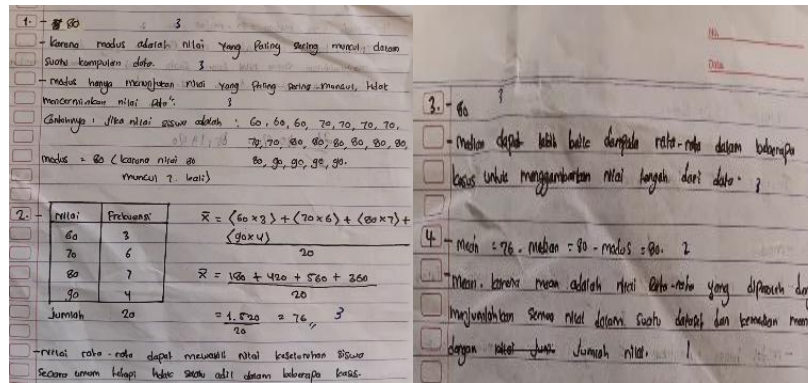 1. - 80 3
- Karena modus adalah nilai yang Paling sering muncul dalam
suatu kumpulan data. 3
- modus hanya menunjukan nilai yang Paling sering muncul, tidak
mencerminkan nilai rata". 3
Contohnya : Jika nilai siswa adalah : 60, 60, 60, 70, 70, 70, 70,
70, 70, 80, 80, 80, 80, 80, 80,
modus = 80 ( karena nilai 80 80, 90, 90, 90, 90.
muncul 7 kali)
2. - Nilai Frekuensi x̄ = (60 x 3) + (70 x 6) + (80 x 7) +
60 3 (90 x 4)
70 6 20
80 7 x̄ = 180 + 420 + 560 + 360
90 4 20
Jumlah 20 = 1.520 = 76 3
20
- nilai rata - rata dapat mewakili nilai keseluruhan siswa
secara umum tetapi tidak selalu adil dalam beberapa kasus.
No.
Date
3. - 80 3
- Median dapat lebih baik daripada rata-rata dalam beberapa
kasus untuk menggambarkan nilai tengah dari data. 3
4 - Mean = 76 - median = 80 - modus = 80. 2
- Mean. karena mean adalah nilai Rata-rata yang diperoleh
menjumlahkan semua nilai dalam suatu dataset dan kemudian
dengan Jumlah nilai. 1